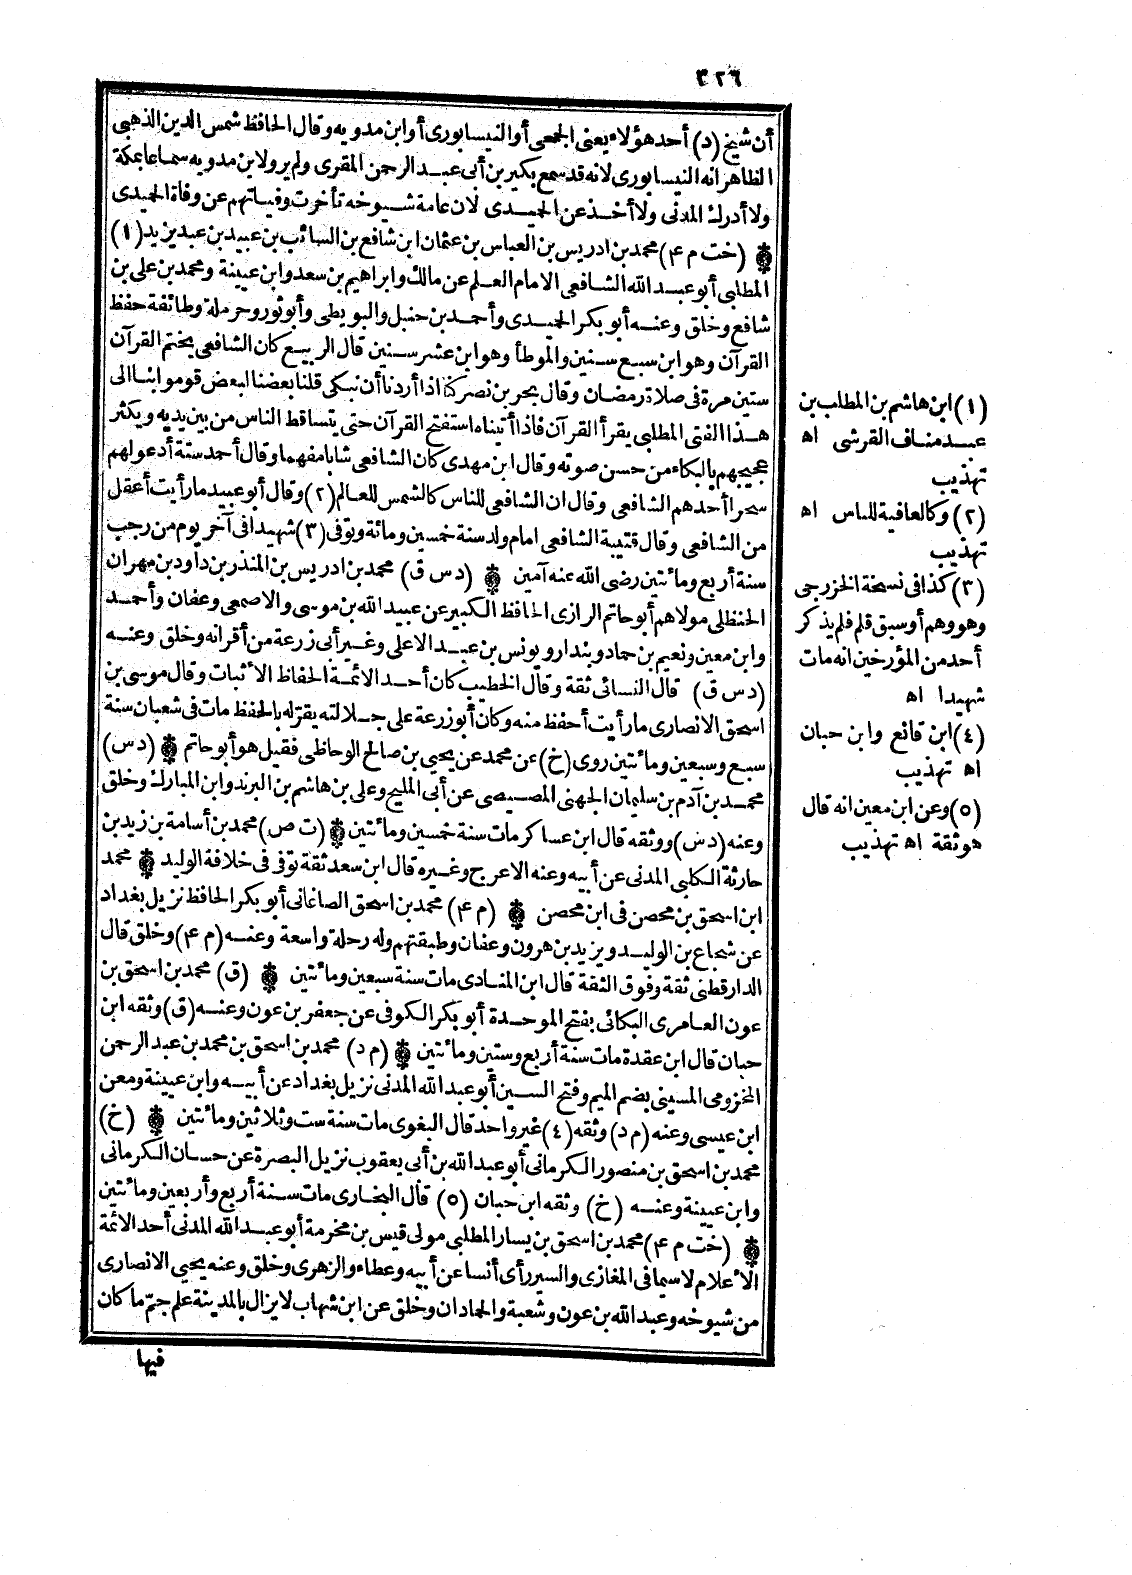 ٣٢٦
أن شيخ (د) أحد هؤلاء يعنى الجمعى أو النيسابورى أو ابن مدويه وقال الحافظ شمس الدين الذهبى
الظاهر انه النيسابورى لانه قد سمع بكير بن أبى عبد الرحمن المقرى ولم يرو لابن مدويه سماعا بمكة
ولا أدرك المدنى ولا أخذ عن الحميدى لان عامة شيوخه تأخرت وفياتهم عن وفاة الحميدى
(خت م ٤) محمد بن ادريس بن العباس بن عثمان ابن شافع بن السائب بن عبيد بن عبد يزيد (١)
المطلبى أبو عبد الله الشافعى الامام العلم عن مالك وابراهيم بن سعد وابن عيينة ومحمد بن على بن
شافع وخلق وعنه أبو بكر الحميدى وأحمد بن حنبل والبويطى وأبو ثور وحرملة وطائفة حفظ
القرآن وهو ابن سبع سنين والموطأ وهو ابن عشر سنين قال الربيع كان الشافعى يختم القرآن
ستين مرة فى صلاة رمضان وقال بحر بن نصر كنا اذا أردنا أن نبكى قلنا بعضنا لبعض قوموا بنا الى
هذا الفتى المطلبى يقرأ القرآن فاذا أتيناه استفتح القرآن حتى يتساقط الناس من بين يديه ويكثر
عجيجهم بالبكاء من حسن صوته وقال ابن مهدى كان الشافعى شابا مفهما وقال أحمد ستة أدعو لهم
سحرا أحدهم الشافعى وقال ان الشافعى للناس كالشمس للعالم (٢) وقال أبو عبيد ما رأيت أعقل
من الشافعى وقال قتيبة الشافعى امام ولد سنة خمسين ومائة وتوفى (٣) شهيدا فى آخر يوم من رجب
سنة أربع ومائتين رضى الله عنه آمين (د س ق) محمد بن ادريس بن المنذر بن داود بن مهران
الحنظلى مولاهم أبو حاتم الرازى الحافظ الكبير عن عبيد الله بن موسى والاصمعى وعفان وأحمد
وابن معين ونعيم بن حماد وبندار ويونس بن عبد الاعلى وغير أبى زرعة من أقرانه وخلق وعنه
(د س ق) قال النسائى ثقة وقال الخطيب كان أحد الائمة الحفاظ الأثبات وقال موسى بن
اسحق الانصارى ما رأيت أحفظ منه وكان أبو زرعة على جلالته يقر له بالحفظ مات فى شعبان سنة
سبع وسبعين ومائتين روى (خ) عن محمد عن يحيى بن صالح الوحاظى فقيل هو أبو حاتم (د س)
محمد بن آدم بن سليمان الجهنى المصيصى عن أبى المليح وعلى بن هاشم بن البريد وابن المبارك وخلق
وعنه (د س) ووثقه قال ابن عساكر مات سنة خمسين ومائتين (ت ص) محمد بن أسامة بن زيد بن
حارثة الكلبى المدنى عن أبيه وعنه الاعرج وغيره قال ابن سعد ثقة توفى فى خلافة الوليد محمد
ابن اسحق بن محصن فى ابن محصن (م ٤) محمد بن اسحق الصاغانى أبو بكر الحافظ نزيل بغداد
عن شجاع بن الوليد ويزيد بن هرون وعفان وطبقتهم وله رحلة واسعة وعنه (م ٤) وخلق قال
الدارقطنى ثقة وفوق الثقة قال ابن المنادى مات سنة سبعين ومائتين (ق) محمد بن اسحق بن
عون العامرى البكائى بفتح الموحدة أبو بكر الكوفى عن جعفر بن عون وعنه (ق) وثقه ابن
حبان قال ابن عقدة مات سنة أربع وستين ومائتين (م د) محمد بن اسحق بن محمد بن عبد الرحمن
المخزومى المسيبى بضم الميم وفتح السين أبو عبد الله المدنى نزيل بغداد عن أبيه وابن عيينة ومعن
ابن عيسى وعنه (م د) وثقه (٤) غير واحد قال البغوى مات سنة ست وثلاثين ومائتين (خ)
محمد بن اسحق بن منصور الكرمانى أبو عبد الله بن أبى يعقوب نزيل البصرة عن حسان الكرمانى
وابن عيينة وعنه (خ) وثقه ابن حبان (٥) قال البخارى مات سنة أربع وأربعين ومائتين
(خت م ٤) محمد بن اسحق بن يسار المطلبى مولى قيس بن مخرمة أبو عبد الله المدنى أحد الائمة
الأعلام لا سيما فى المغازى والسير رأى أنسا عن أبيه وعطاء والزهرى وخلق وعنه يحيى الانصارى
من شيوخه وعبد الله بن عون وشعبة والحمادان وخلق عن ابن شهاب لا يزال بالمدينة علم جم ما كان
فيها
(١) ابن هاشم بن المطلب بن
عبد مناف القرشى اه
تهذيب
(٢) وكالعافية للناس اه
تهذيب
(٣) كذا فى نسخة الخزرجى
وهو وهم أو سبق قلم فلم يذكر
أحد من المؤرخين انه مات
شهيدا اه
(٤) ابن قانع وابن حبان
اه تهذيب
(٥) وعن ابن معين انه قال
هو ثقة اه تهذيب